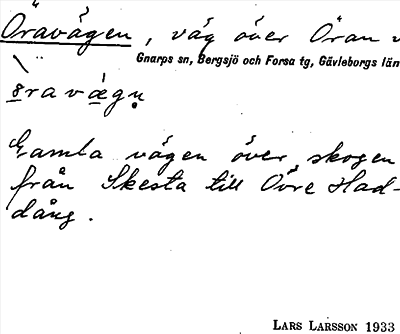 Öravägen, väg över Öran v
Gnarps sn, Bergsjö och Forsa tg, Gävleborgs län
Gamla vägen över skogen
från Skesta till Övre Had-
dång.
LARS LARSSON 1933